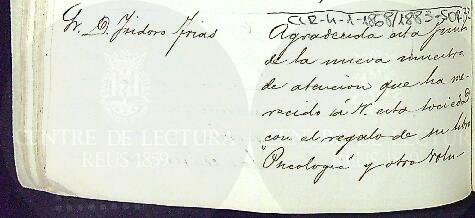 CLR-4-1-1868/1883-507
Sr. D. Isidoro Frias
Agradecida esta Junta
de la nueva muestra
de atencion que ha me-
recido á V. esta Sociedad
con el regalo de su libro
"Oncologia" y otro volu-
CENTRE DE LECTURA
REUS 1859